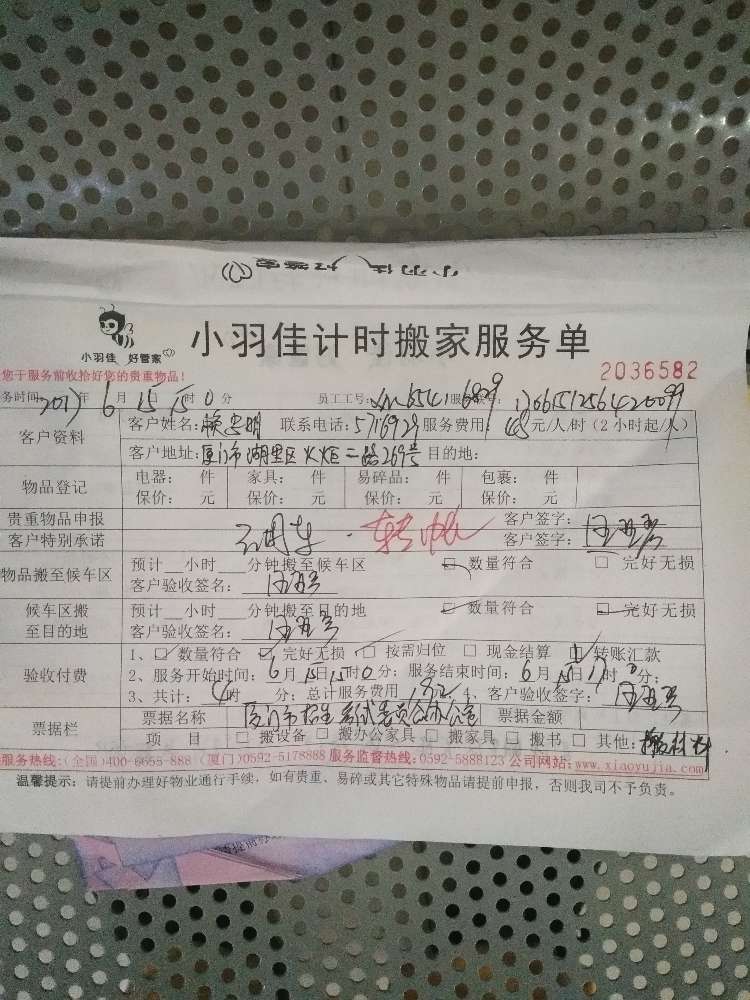 小羽佳 好管家
小羽佳 好管家
小羽佳计时搬家服务单
2036582
您于服务前收拾好您的贵重物品！
务时间：2017年6月15日15时0分 员工工号：
客户资料
客户姓名： 联系电话：5716929 服务费用：48元/人/时（2小时起/人）
客户地址：厦门市湖里区火炬二路269号 目的地：
物品登记
电器： 件 家具： 件 易碎品： 件 包裹： 件
保价： 元 保价： 元 保价： 元 保价： 元
贵重物品申报 客户签字：
客户特别承诺 客户签字：
物品搬至候车区
预计__小时__分钟搬至候车区 □ 数量符合 □ 完好无损
客户验收签名：
候车区搬至目的地
预计__小时__分钟搬至目的地 □ 数量符合 □ 完好无损
客户验收签名：
验收付费
1、□ 数量符合 □ 完好无损 □ 按需归位 □ 现金结算 □ 转账汇款
2、服务开始时间：6月15日15时0分；服务结束时间：6月15日17时0分；
3、共计：4时 分；总计服务费用 4、客户验收签字：
票据栏
票据名称 厦门市招生考试委员会办公室 票据金额
项 目 □ 搬设备 □ 搬办公家具 □ 搬家具 □ 搬书 □ 其他：搬材料
服务热线：（全国）400-6655-888（厦门）0592-5178888 服务监督热线：0592-5888123 公司网站：www.xiaoyujia.com
温馨提示：请提前办理好物业通行手续，如有贵重、易碎或其它特殊物品请提前申报，否则我司不予负责。